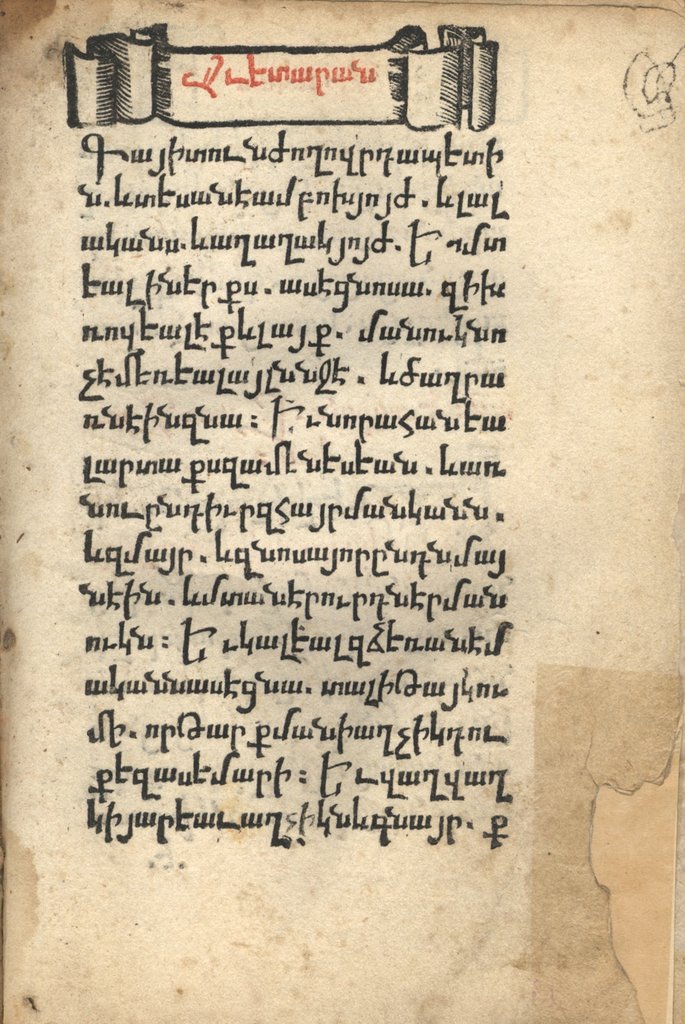 Աւետարան
Գայ ի տուն ժողովրդապետի
ն. և տեսանէ ամբոխ յոյժ. և լալ
ականս. և աղաղակ յոյժ. Եւ մտ
եալ ի ներքս. ասէ ցնոսա. զի խ
ռովեալ էք և լայք. մանուկն ո
չ է մեռեալ այլ ննջէ. և ծաղր ա
ռնէին զնա։ Եւ նորա հանեա
լ արտաքս զամէնեսեան. և առ
նու ընդ իւր զհայր մանկանն.
և զմայր. և զնոսա յոր ընդ նմայ
նէին. և մտանէր ուր դնէր ման
ուկն։ Եւ կալեալ զձեռանէ մ
ականն ասէ ցնա. տալիթայ կու
մի. որ թարքմանի աղչիկ դու
քեզ ասեմ արի։ Եւ վաղվաղ
կի յարեաւ աղչիկն և գնայր. ք